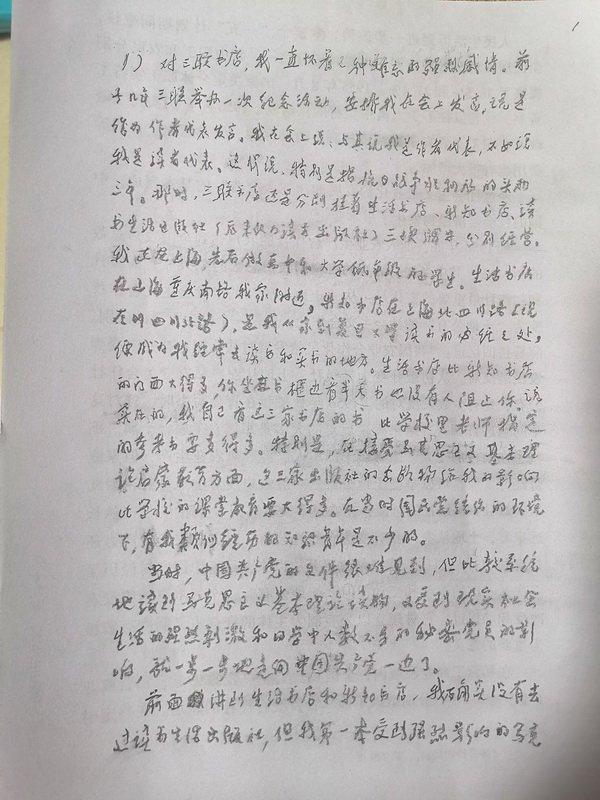 1
1) 对三联书店，我一直怀着一种难忘的强烈感情。前
几年三联举办一次纪念活动，安排我在会上发言，说是
作为作者代表发言。我在会上说，与其说我是作者代表，不如说
我是读者代表。这样说，特别是指抗日战争胜利后的头两
三年。那时，三联书店还是分别挂着生活书店、新知书店、读
书生活出版社（后来改为读书出版社）三块牌子，分别经营。
我正在上海，先后做高中和大学低年级的学生。生活书店
在上海重庆南路我家附近，新知书店在上海北四川路（现
在叫四川北路），是我从家到复旦大学读书的必经之处，
便成为我经常去读书和买书的地方。生活书店比新知书店
的门面大得多，你坐在书柜边看半天书也没有人阻止你。说
实在的，我自己看这三家书店的书，比学校里老师指定
的参考书要多得多。特别是，在接受马克思主义基本理
论启蒙教育方面，这三家出版社的出版物给我的影响
比学校的课堂教育要大得多。在当时国民党统治的环境
下，有我类似经历的知识青年是不少的。
当时，中国共产党的文件很难见到，但比较系统
地读到马克思主义基本理论读物，又受到现实社会
生活的强烈刺激和同学中人数不多的秘密党员的影
响，就一步一步地走向中国共产党一边了。
前面讲到生活书店和新知书店，我确实没有去
过读书生活出版社，但我第一本受到强烈影响的马克